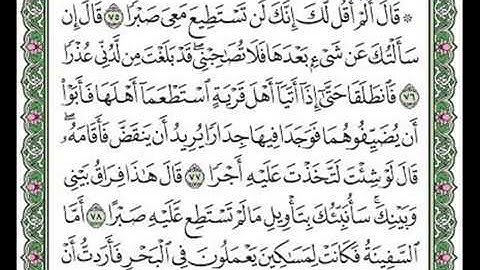 ۞ قَالَ أَلَمْ أَقُل لَّكَ إِنَّكَ لَن تَسْتَطِيعَ مَعِيَ صَبْرًا ٧٥ قَالَ إِن
سَأَلْتُكَ عَن شَىْءٍۭ بَعْدَهَا فَلَا تُصَٰحِبْنِى ۖ قَدْ بَلَغْتَ مِن لَّدُنِّى عُذْرًا
٧٦ فَٱنطَلَقَا حَتَّىٰٓ إِذَآ أَتَيَآ أَهْلَ قَرْيَةٍ ٱسْتَطْعَمَآ أَهْلَهَا فَأَبَوْا۟
أَن يُضَيِّفُوهُمَا فَوَجَدَا فِيهَا جِدَارًا يُرِيدُ أَن يَنقَضَّ فَأَقَامَهُۥ ۖ
قَالَ لَوْ شِئْتَ لَتَّخَذْتَ عَلَيْهِ أَجْرًا ٧٧ قَالَ هَٰذَا فِرَاقُ بَيْنِى
وَبَيْنِكَ ۚ سَأُنَبِّئُكَ بِتَأْوِيلِ مَا لَمْ تَسْتَطِع عَّلَيْهِ صَبْرًا ٧٨ أَمَّا
ٱلسَّفِينَةُ فَكَانَتْ لِمَسَٰكِينَ يَعْمَلُونَ فِى ٱلْبَحْرِ فَأَرَدتُّ أَنْ